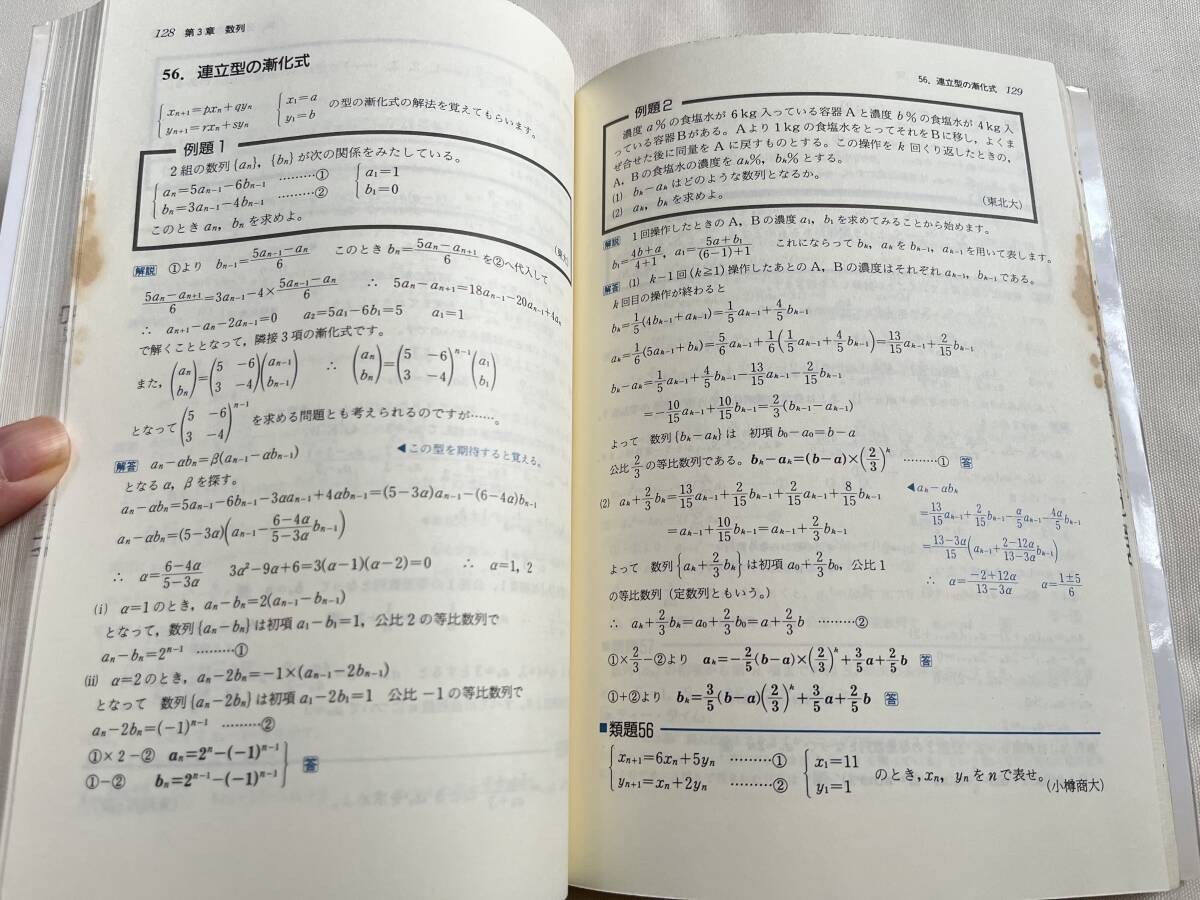 128 第3章 数列
56. 連立型の漸化式
{xn+1=pxn+qyn {x1=a の型の漸化式の解法を覚えてもらいます。
{yn+1=rxn+syn {y1=b
例題1
2組の数列{an}, {bn}が次の関係をみたしている。
{an=5an-1−6bn-1 ………① {a1=1
{bn=3an-1−4bn-1 ………② {b1=0
このとき an, bn を求めよ。
解説 ①より bn-1=(5an-1−an)/6 このとき bn=(5an−an+1)/6 を②へ代入して
(5an−an+1)/6=3an-1−4×(5an-1−an)/6 ∴ 5an−an+1=18an-1−20an-1+4an
∴ an+1−an−2an-1=0 a2=5a1−6b1=5 a1=1
で解くこととなって，隣接3項の漸化式です。
また，(an bn)=(5 −6 3 −4)(an-1 bn-1) ∴ (an bn)=(5 −6 3 −4)^n-1 (a1 b1)
となって (5 −6 3 −4)^n-1 を求める問題とも考えられるのですが……。
解答 an−αbn=β(an-1−αbn-1) ◀この型を期待すると覚える。
となる α, β を探す。
an−αbn=5an-1−6bn-1−3αan-1+4αbn-1=(5−3α)an-1−(6−4α)bn-1
an−αbn=(5−3α)(an-1−(6−4α)/(5−3α) bn-1)
∴ α=(6−4α)/(5−3α) 3α²−9α+6=3(α−1)(α−2)=0 ∴ α=1, 2
(i) α=1のとき, an−bn=2(an-1−bn-1)
となって，数列{an−bn}は初項 a1−b1=1，公比2の等比数列で
an−bn=2^n-1 ………①
(ii) α=2のとき, an−2bn=−1×(an-1−2bn-1)
となって 数列{an−2bn}は初項 a1−2b1=1 公比 −1 の等比数列で
an−2bn=(−1)^n-1 ………②
①×2−② an=2^n−(−1)^n-1
①−② bn=2^n-1−(−1)^n-1 } 答
56. 連立型の漸化式 129
例題2
濃度 a% の食塩水が 6kg 入っている容器Aと濃度 b% の食塩水が 4kg 入
っている容器Bがある。Aより1kgの食塩水をとってそれをBに移し，よくま
ぜ合せた後に同量を A に戻すものとする。この操作を k 回くり返したときの，
A，Bの食塩水の濃度を ak%，bk% とする。
(1) bk−ak はどのような数列となるか。
(2) ak, bk を求めよ。 (東北大)
解説 1回操作したときのA，Bの濃度 a1, b1 を求めてみることから始めます。
b1=(4b+a)/(4+1), a1=(5a+b1)/((6−1)+1) これにならって bk, ak を bk-1, ak-1 を用いて表します。
解答 (1) k−1回(k≧1)操作したあとのA，Bの濃度はそれぞれ ak-1, bk-1 である。
k回目の操作が終わると
bk=1/5(4bk-1+ak-1)=1/5 ak-1+4/5 bk-1
ak=1/6(5ak-1+bk)=5/6 ak-1+1/6(1/5 ak-1+4/5 bk-1)=13/15 ak-1+2/15 bk-1
bk−ak=1/5 ak-1+4/5 bk-1−13/15 ak-1−2/15 bk-1
=−10/15 ak-1+10/15 bk-1=2/3(bk-1−ak-1)
よって 数列{bk−ak}は 初項 b0−a0=b−a
公比 2/3 の等比数列である。bk−ak=(b−a)×(2/3)^k ………① 答
(2) ak+2/3 bk=13/15 ak-1+2/15 bk-1+2/15 ak-1+8/15 bk-1
=ak-1+10/15 bk-1=ak-1+2/3 bk-1
よって 数列{ak+2/3 bk}は初項 a0+2/3 b0，公比1
の等比数列(定数列ともいう。)
∴ ak+2/3 bk=a0+2/3 b0=a+2/3 b ………②
◀ak−αbk
=13/15 ak-1+2/15 bk-1−α/5 ak-1−4α/5 bk-1
=(13−3α)/15 (ak-1+(2−12α)/(13−3α) bk-1)
∴ α=(−2+12α)/(13−3α) α=(1±5)/6
①×2/3−②より ak=−2/5(b−a)×(2/3)^k+3/5 a+2/5 b 答
①+②より bk=3/5(b−a)(2/3)^k+3/5 a+2/5 b 答
■類題56
{xn+1=6xn+5yn ………① {x1=11 のとき，xn, yn を n で表せ。
{yn+1=xn+2yn ………② {y1=1 (小樽商大)